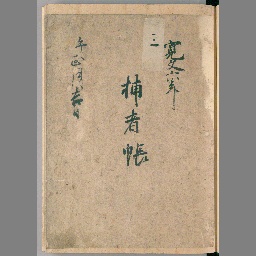 三
寛文六年
捕者帳
午正月吉日